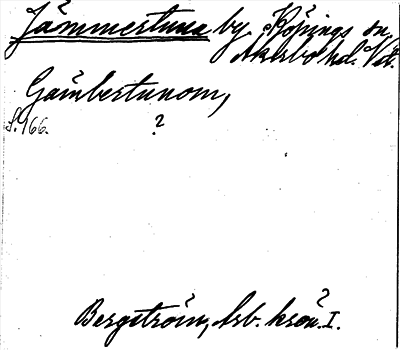 Jämmertuna by, Köpings sn,
Åkerbo hd. Vstl.
Gämbertunom,
S. 166. ?
Bergström, Arb. krön. I.